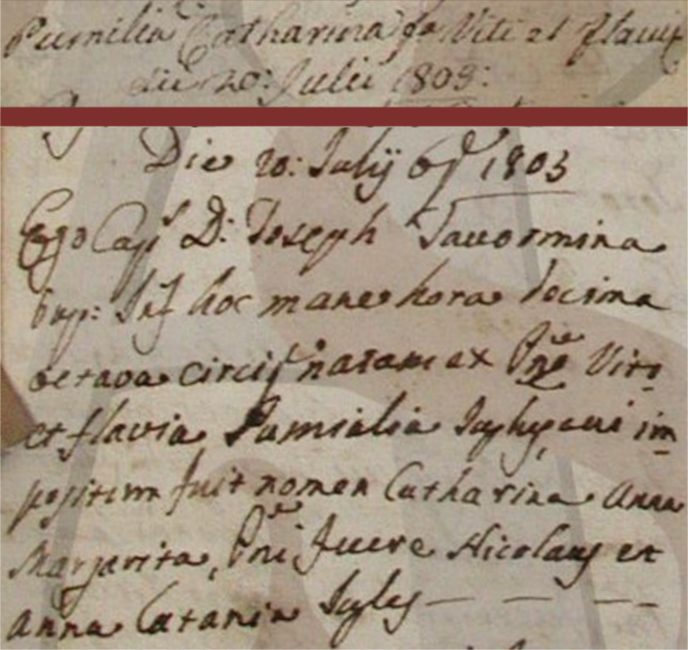 Pumilia Catharina fa Viti et Flavię
die 20: Julii 1803:
Die 20: Julÿ 6ę Ind 1803
Ego Capp.s D: Joseph Tavormina
bap: Inf hoc mane hora decima
octava circis natam ex Pñe Vito
et flavia Pumialia Jughs, cui im
positum fuit nomen Catharina Anna
Margarita, Pñi fuere Nicolaus et
Anna Catania Jugles